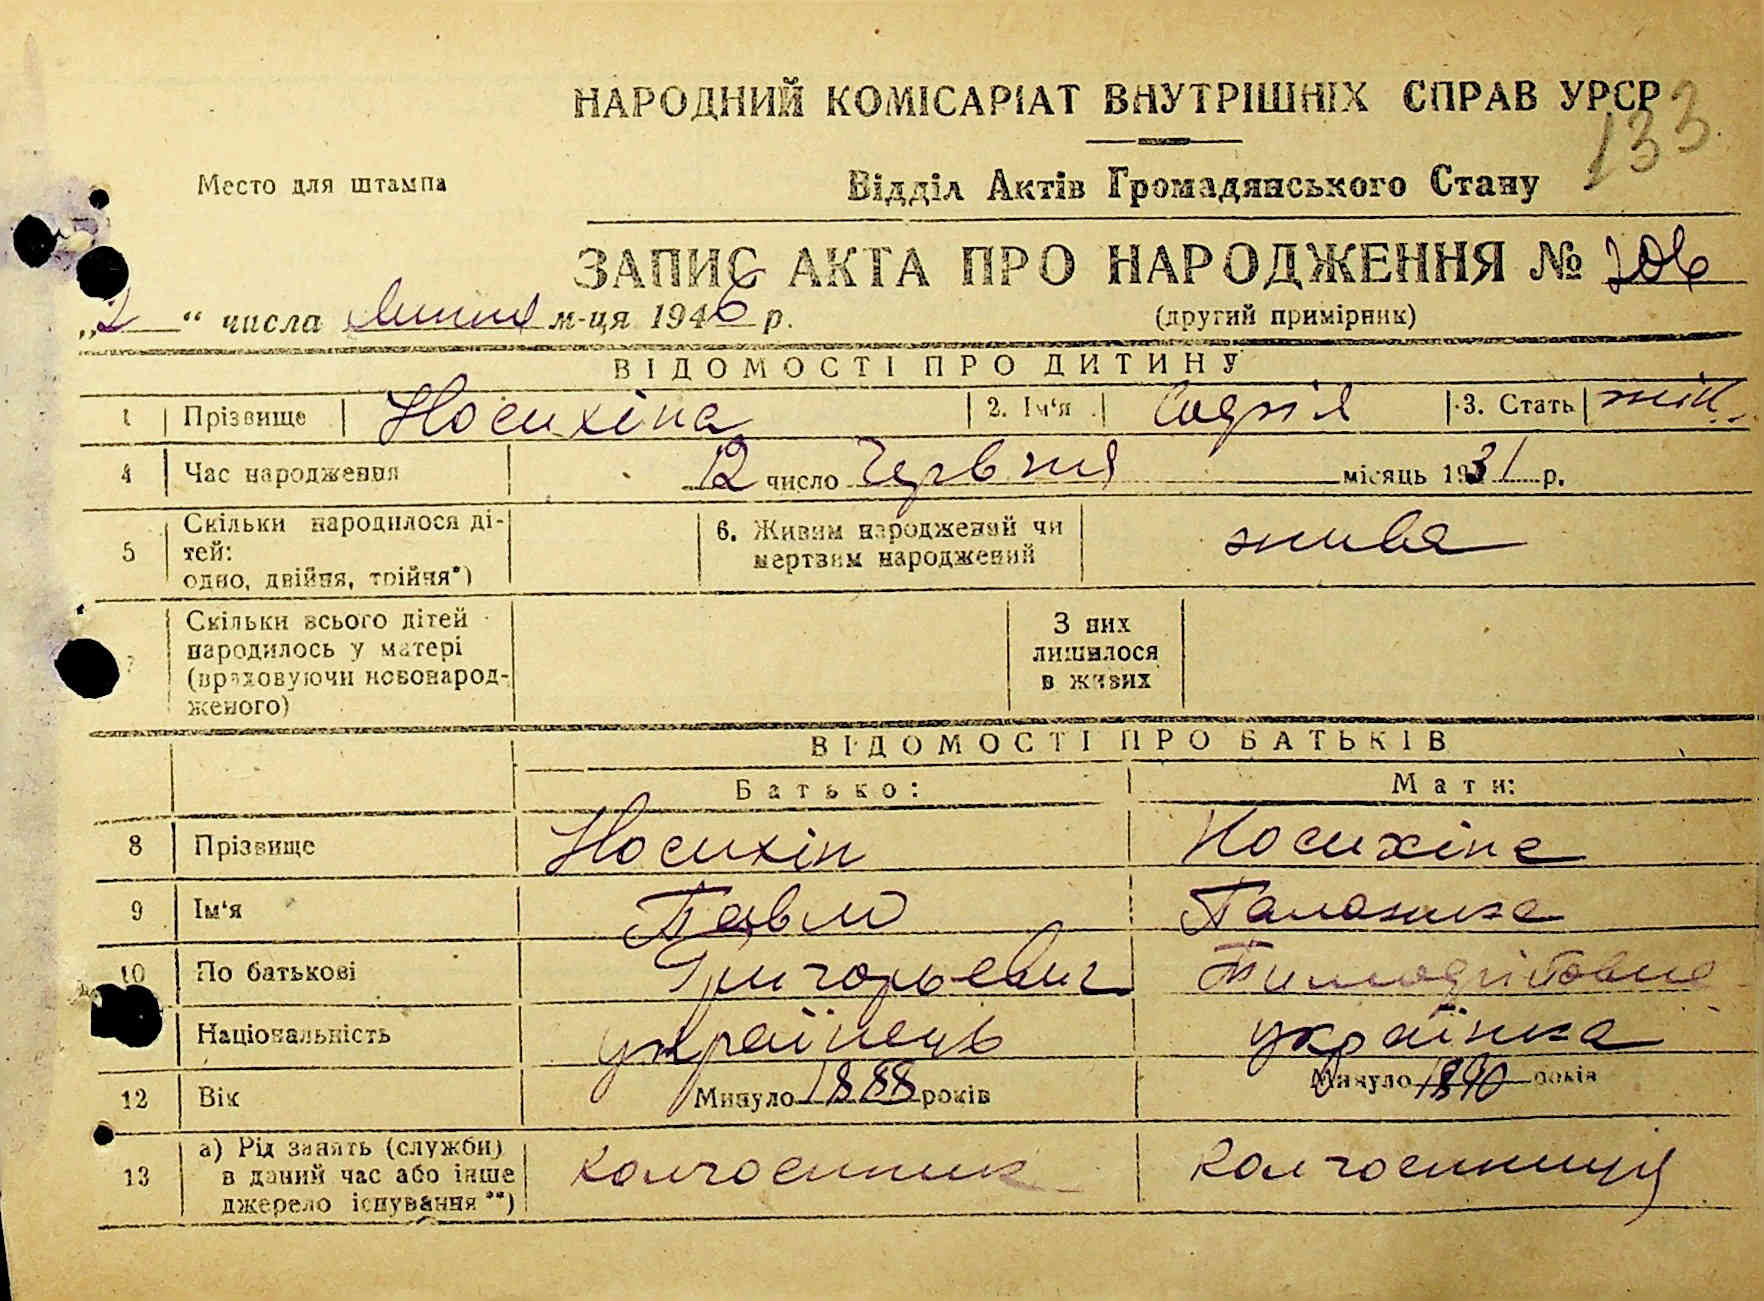 НАРОДНИЙ КОМІСАРІАТ ВНУТРІШНІХ СПРАВ УРСР
133
Место для штампа
Відділ Актів Громадянського Стану
ЗАПИС АКТА ПРО НАРОДЖЕННЯ № 206
„2“ числа Липня м-ця 1946 р.
(другий примірник)
ВІДОМОСТІ ПРО ДИТИНУ
1 Прізвище Носихіна 2. Ім'я Софія 3. Стать жін.
4 Час народження 12 число Червня місяць 1931 р.
5 Скільки народилося ді-
тей:
одно, двійня, трійня*)
6. Живим народжений чи
мертвим народжений
жива
7 Скільки всього дітей
народилось у матері
(враховуючи новонарод-
женого)
З них
лишилося
в живих
ВІДОМОСТІ ПРО БАТЬКІВ
Батько: Мати:
8 Прізвище Носихін Носихіна
9 Ім'я Павло Палажка
10 По батькові Григорьевич
Національність українець українка
12 Вік Минуло 1888 років Минуло 1890 років
13 а) Рід занять (служби)
в даний час або інше
джерело існування**)
колгоспник колгоспниця